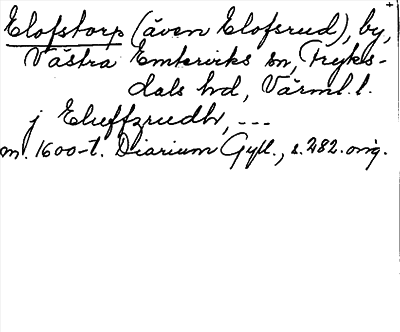 Elofstorp (även Elofsrud), by,
Västra Emterviks sn, Fryks-
dals hd, Värml. l.
j Eluffzrudh, ---
m. 1600-t. Diarium Gyll., s. 282. orig.